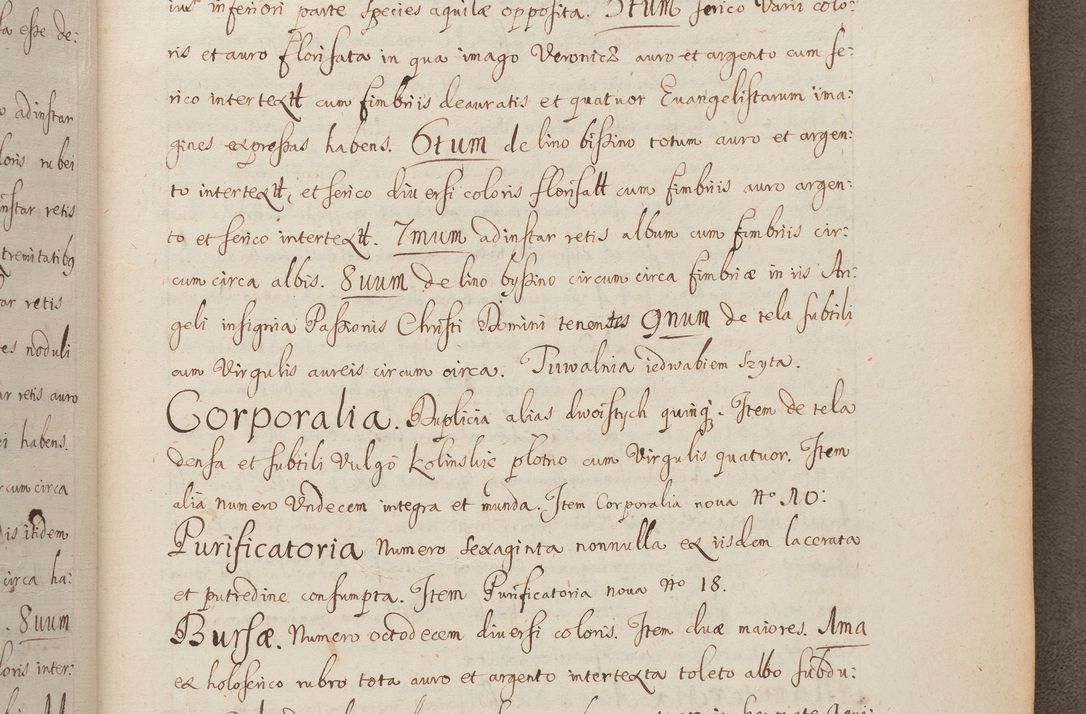 inferiori parte species aquilæ opposita. 5tum serico varii colo:
ris et auro florisata in qua imago Veronicæ auro et argento cum se:
rico intertextt cum fimbriis deauratis et quatuor Evangelistarum ima:
gines expressas habens. 6tum de lino bissino totum auro et argen:
to intertextt, et serico diversi coloris florisatt cum fimbriis auro argen:
to et serico intertextt. 7mum ad instar retis album cum fimbriis cir:
cum circa albis. 8vum de lino byssino circum circa fimbriæ in iis An:
geli insignia Passionis Christi Domini tenentes 9num de tela subtili
cum Virgulis aureis circum circa. Tuwalnia iedwabiem szyta.
Corporalia. Duplicia alias dwoistych quinq;. Item de tela
densa et subtili Vulgo kolinskie plotno cum Virgulis quatuor. Item
alia numero Undecem integra et munda. Item Corporalia nova No 10:
Purificatoria Numero sexaginta nonnulla ex iisdem lacerata
et putredine consumpta. Item Purificatoria nova No 18.
Bursæ. Numero octodecem diversi coloris. Item duæ maiores. 1ma
ex holoserico rubro tota auro et argento intertexta toleto albo subdu:
a esse de:
ad instar
loris rubei
instar retis
tremitatibq
ar retis
es noduli
ar retis auro
i habens.
cum circa
is itidem
circa ha:
. 8vum
loris inter: